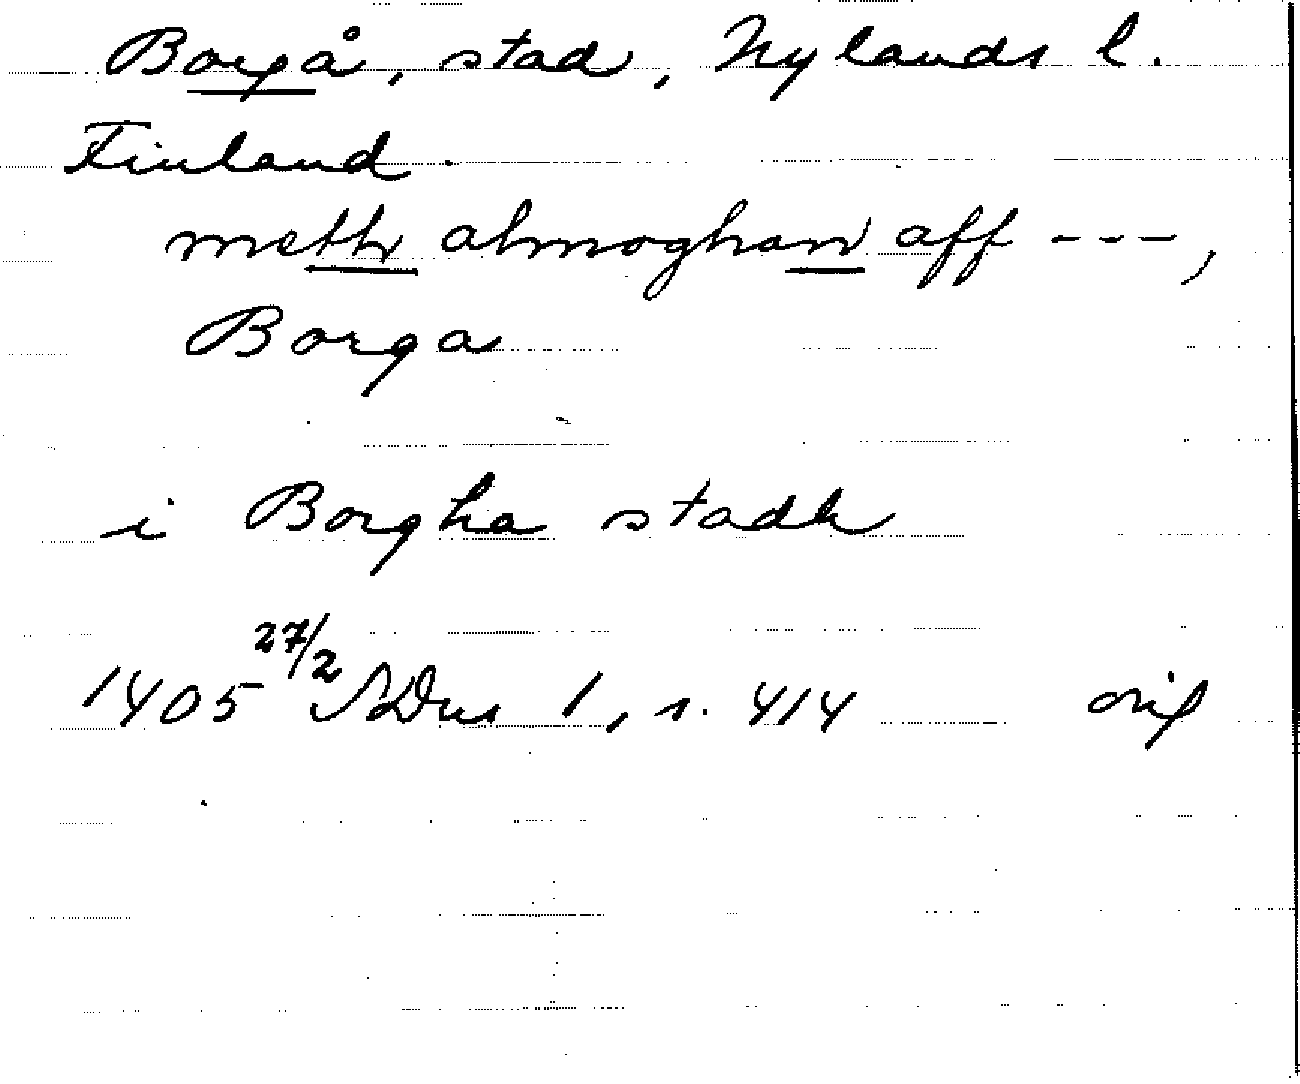 Borgå, stad, Nylands l.
Finland.
meth almoghan aff ---,
Borga
i Borgha stadh
1405 27/2 SDns 1, s. 414 orig